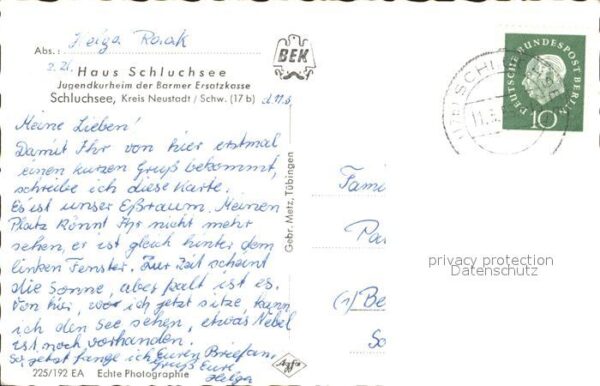 Abs.: Helga Raak
z. Zt.
BEK
Haus Schluchsee
Jugendkurheim der Barmer Ersatzkasse
Schluchsee, Kreis Neustadt / Schw. (17 b)
Meine Lieben!
Damit Ihr von hier erstmal
einen kurzen Gruß bekommt,
schreibe ich diese Karte.
Es ist unser Eßraum. Meinen
Platz könnt Ihr nicht mehr
sehen, er ist gleich hinter dem
linken Fenster. Zur Zeit scheint
die Sonne, aber kalt ist es.
Von hier, wo ich jetzt sitze kann
ich den See sehen, etwas Nebel
ist noch vorhanden.
So, jetzt fange ich Euren Brief an.
Gruß Eure
Helga
225/192 EA Echte Photographie
Gebr. Metz, Tübingen
Agfa
DEUTSCHE BUNDESPOST BERLIN
10
Fami
(1) Be
privacy protection
Datenschutz